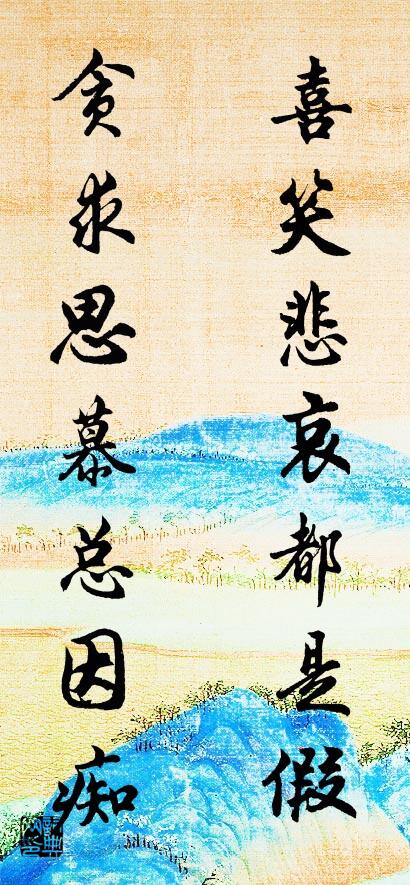 喜笑悲哀都是假
贪求思慕总因痴